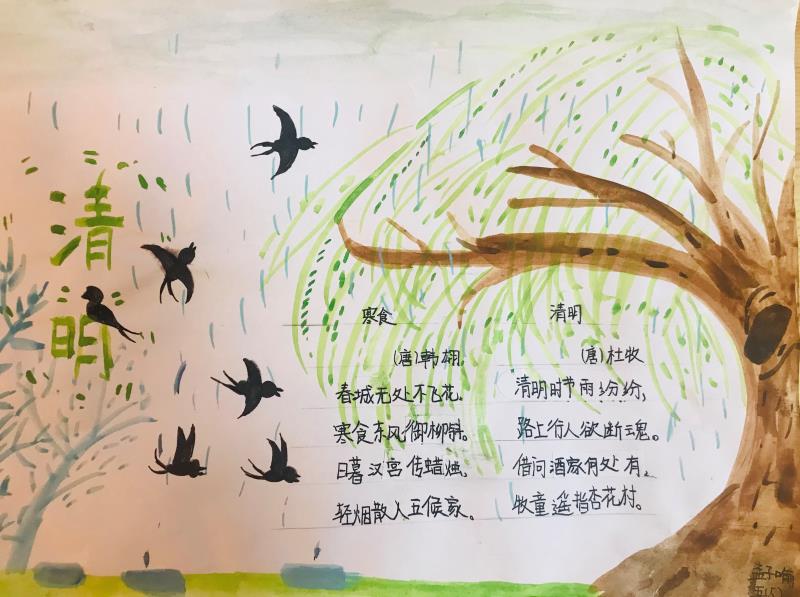 清明
寒食
(唐)韩栩
春城无处不飞花,
寒食东风御柳斜。
日暮汉宫传蜡烛,
轻烟散入五候家。
清明
(唐)杜牧
清明时节雨纷纷,
路上行人欲断魂。
借问酒家何处有,
牧童遥指杏花村。